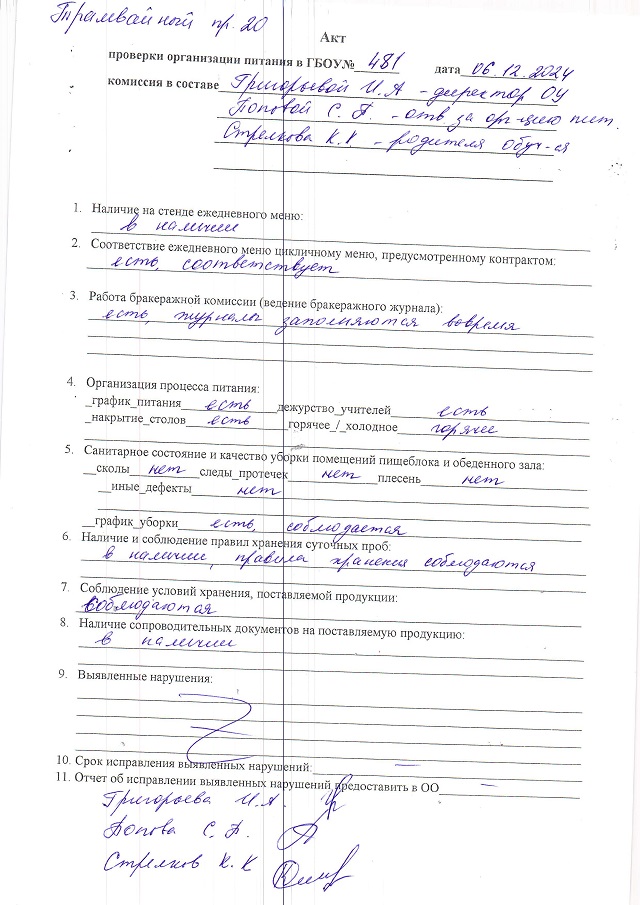 Трамвайный пр. 20
Акт
проверки организации питания в ГБОУ№ 481 дата 06.12.2024
комиссия в составе Григорьевой И.А - директор ОУ
Поповой С. П. - отв за орг-цию пит.
Стрелкова К.К - родителя обуч-ся
1. Наличие на стенде ежедневного меню:
в наличии
2. Соответствие ежедневного меню цикличному меню, предусмотренному контрактом:
есть, соответствует
3. Работа бракеражной комиссии (ведение бракеражного журнала):
есть, журналы заполняются вовремя
4. Организация процесса питания:
_график_питания есть дежурство_учителей есть
_накрытие_столов есть горячее_/_холодное горячее
5. Санитарное состояние и качество уборки помещений пищеблока и обеденного зала:
__сколы нет следы_протечек нет плесень нет
__иные_дефекты нет
__график_уборки есть, соблюдается
6. Наличие и соблюдение правил хранения суточных проб:
в наличии, правила хранения соблюдаются
7. Соблюдение условий хранения, поставляемой продукции:
соблюдаются
8. Наличие сопроводительных документов на поставляемую продукцию:
в наличии
9. Выявленные нарушения:
10. Срок исправления выявленных нарушений: —
11. Отчет об исправлении выявленных нарушений предоставить в ОО —
Григорьева И.А.
Попова С. П.
Стрелков К.К